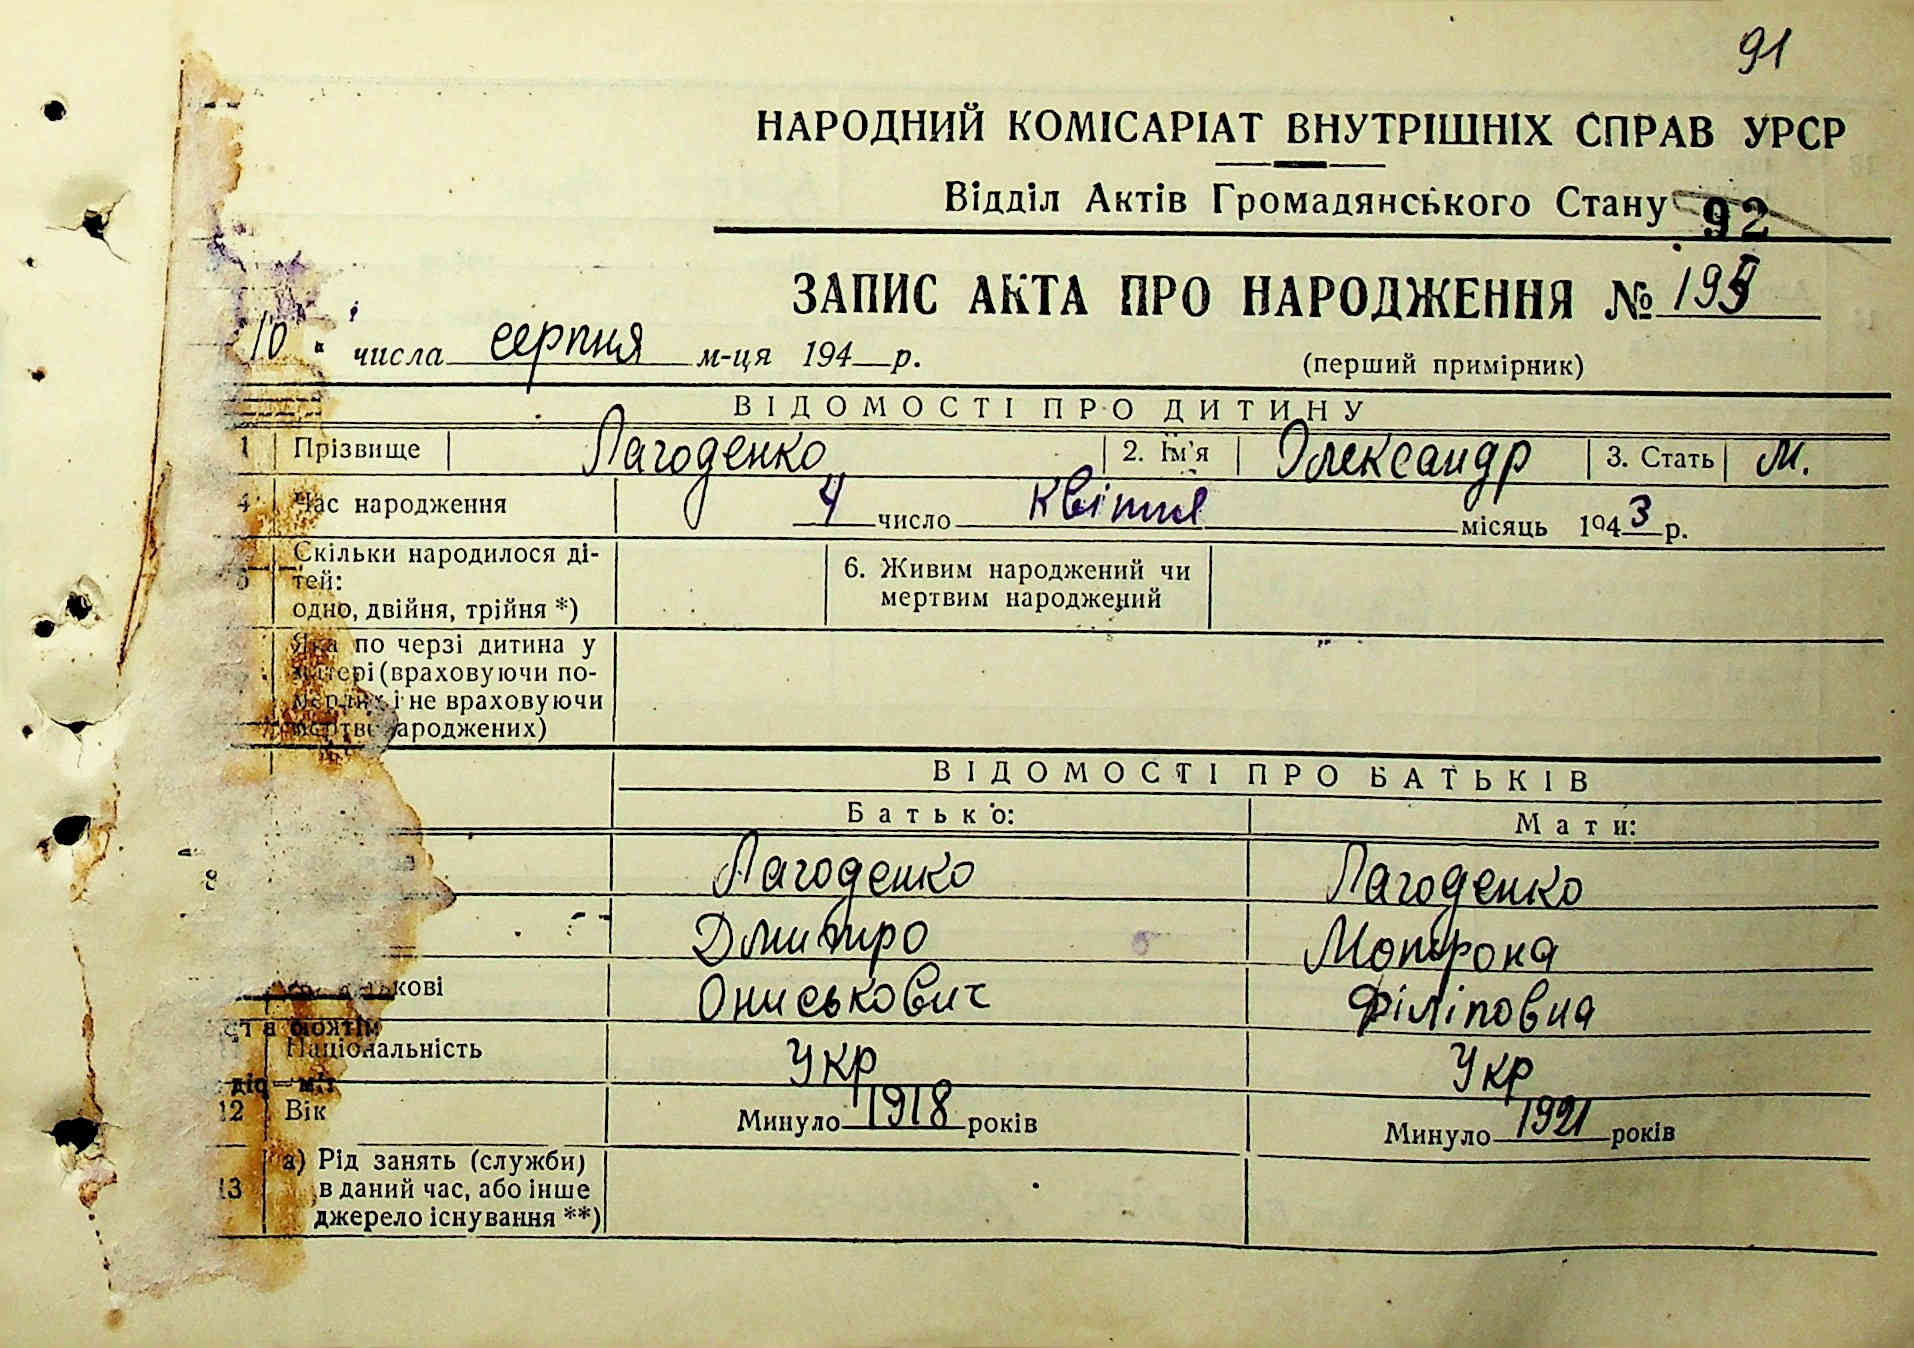 91
НАРОДНИЙ КОМІСАРІАТ ВНУТРІШНІХ СПРАВ УРСР
Відділ Актів Громадянського Стану 92
ЗАПИС АКТА ПРО НАРОДЖЕННЯ №
10 " числа серпня м-ця 194 р. (перший примірник)
ВІДОМОСТІ ПРО ДИТИНУ
1 Прізвище Лагоденко 2. Ім'я Олександр 3. Стать М.
4 Час народження 4 число квітня місяць 1943 р.
5 Скільки народилося ді-
тей:
одно, двійня, трійня *)
6. Живим народжений чи
мертвим народжений
Яка по черзі дитина у
матері (враховуючи по-
мерлих і не враховуючи
мертвонароджених)
ВІДОМОСТІ ПРО БАТЬКІВ
Батько: Мати:
8 Лагоденко Лагоденко
Дмитро Мотрона
кові Ониськович Філіповна
Національність Укр Укр
12 Вік Минуло 1918 років Минуло 1921 років
13 а) Рід занять (служби)
в даний час, або інше
джерело існування **)